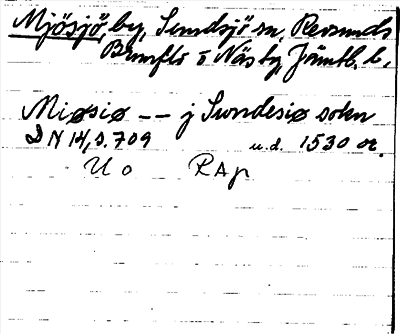 Mjösjö, by, Sundsjö sn, Revsunds
Näs tg, Jämtl. l.
Miøsiø -- j Sundesiø soken
DN 14, s. 709 u.d. 1530 or.
U o RAp